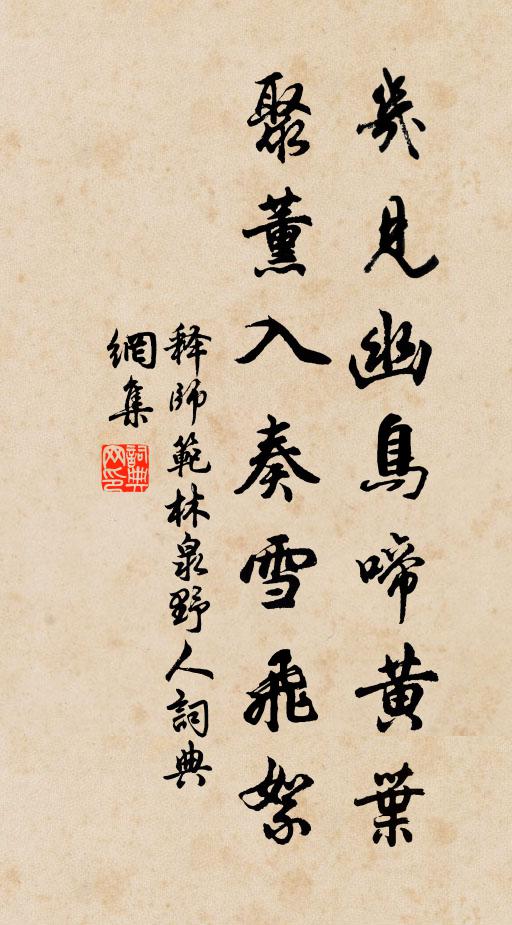 幾見幽鳥啼黃葉
聚薰入奏雪飛絮
释師範林泉野人詞典
網集
詞典網印